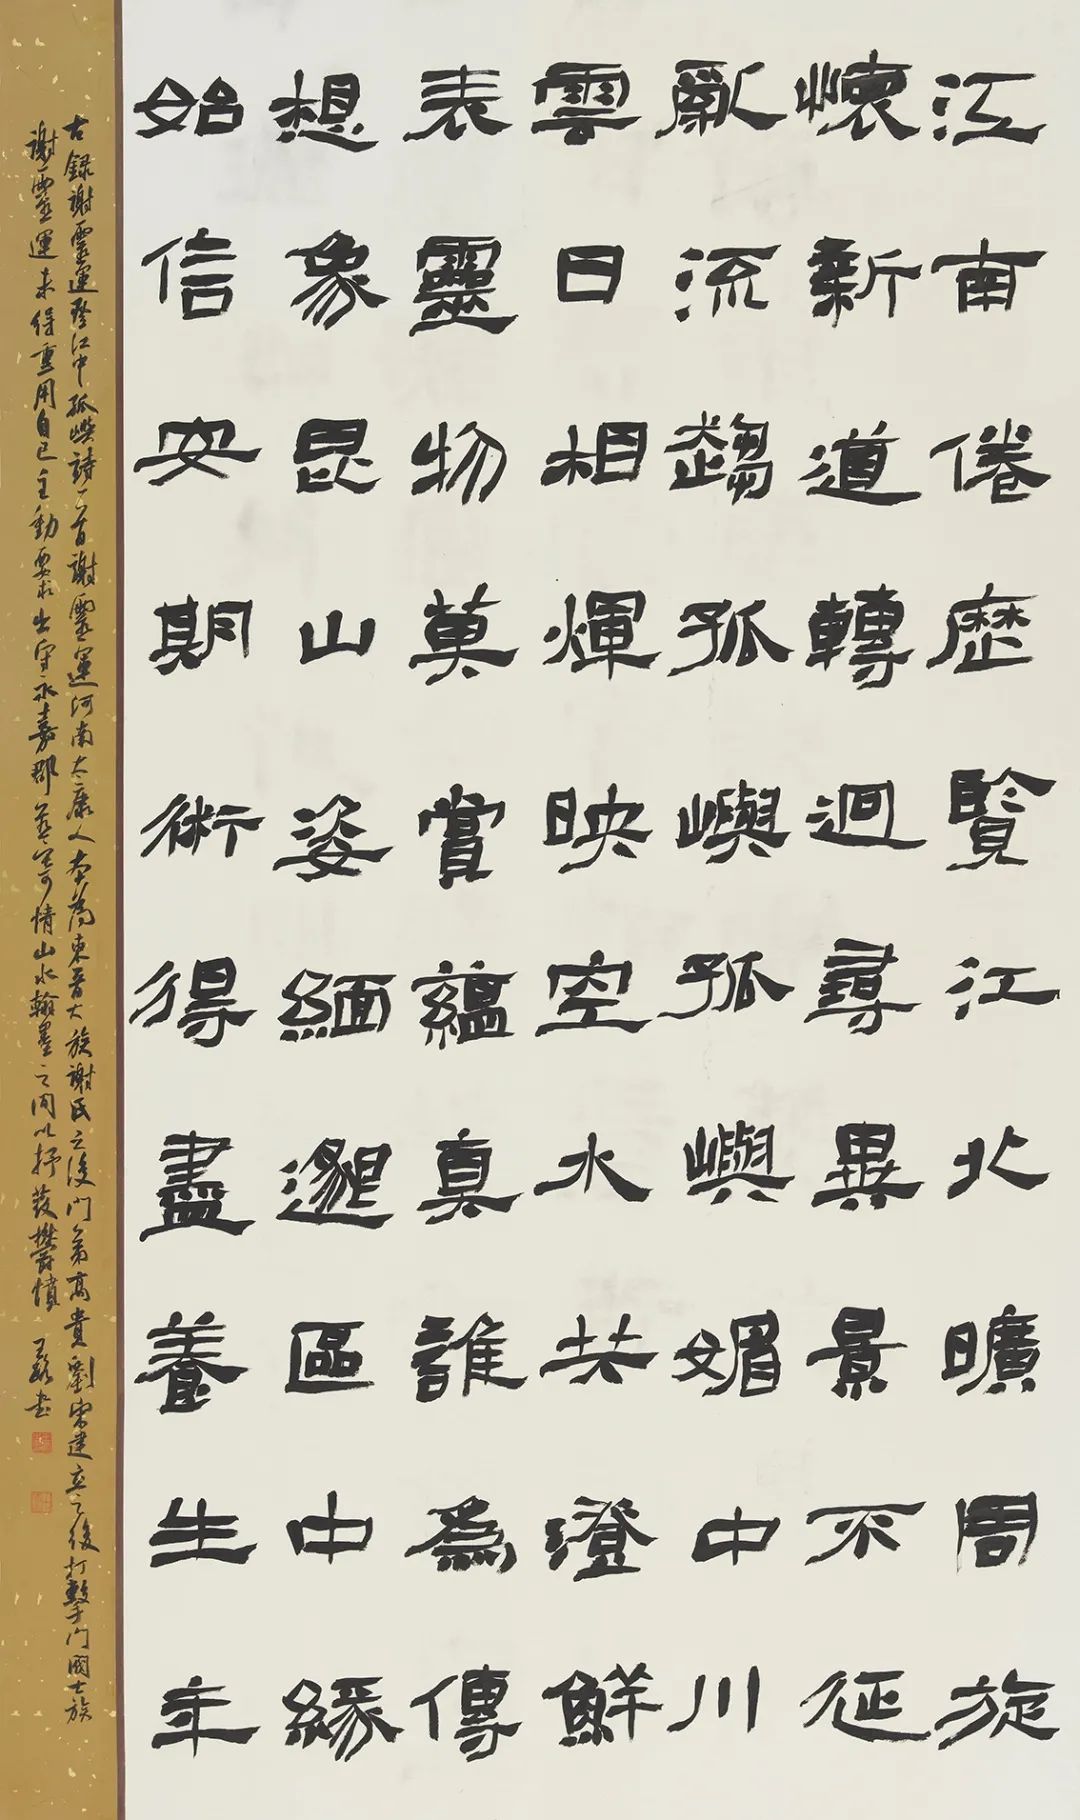 江南倦歷覽江北曠周旋
懷新道轉迥尋異景不延
亂流趨孤嶼孤嶼媚中川
雲日相煇映空水共澄鮮
表靈物莫賞蘊真誰為傳
想象昆山姿緬邈區中緣
始信安期術得盡養生年
古錄謝靈運登江中孤嶼詩一首謝靈運河南太康人本為東晉大族謝氏之後門第高貴劉宋建立之後打擊門閥士族
謝靈運未得重用自己主動要求出守永嘉郡並寄情山水翰墨之間以抒發鬱憤 書